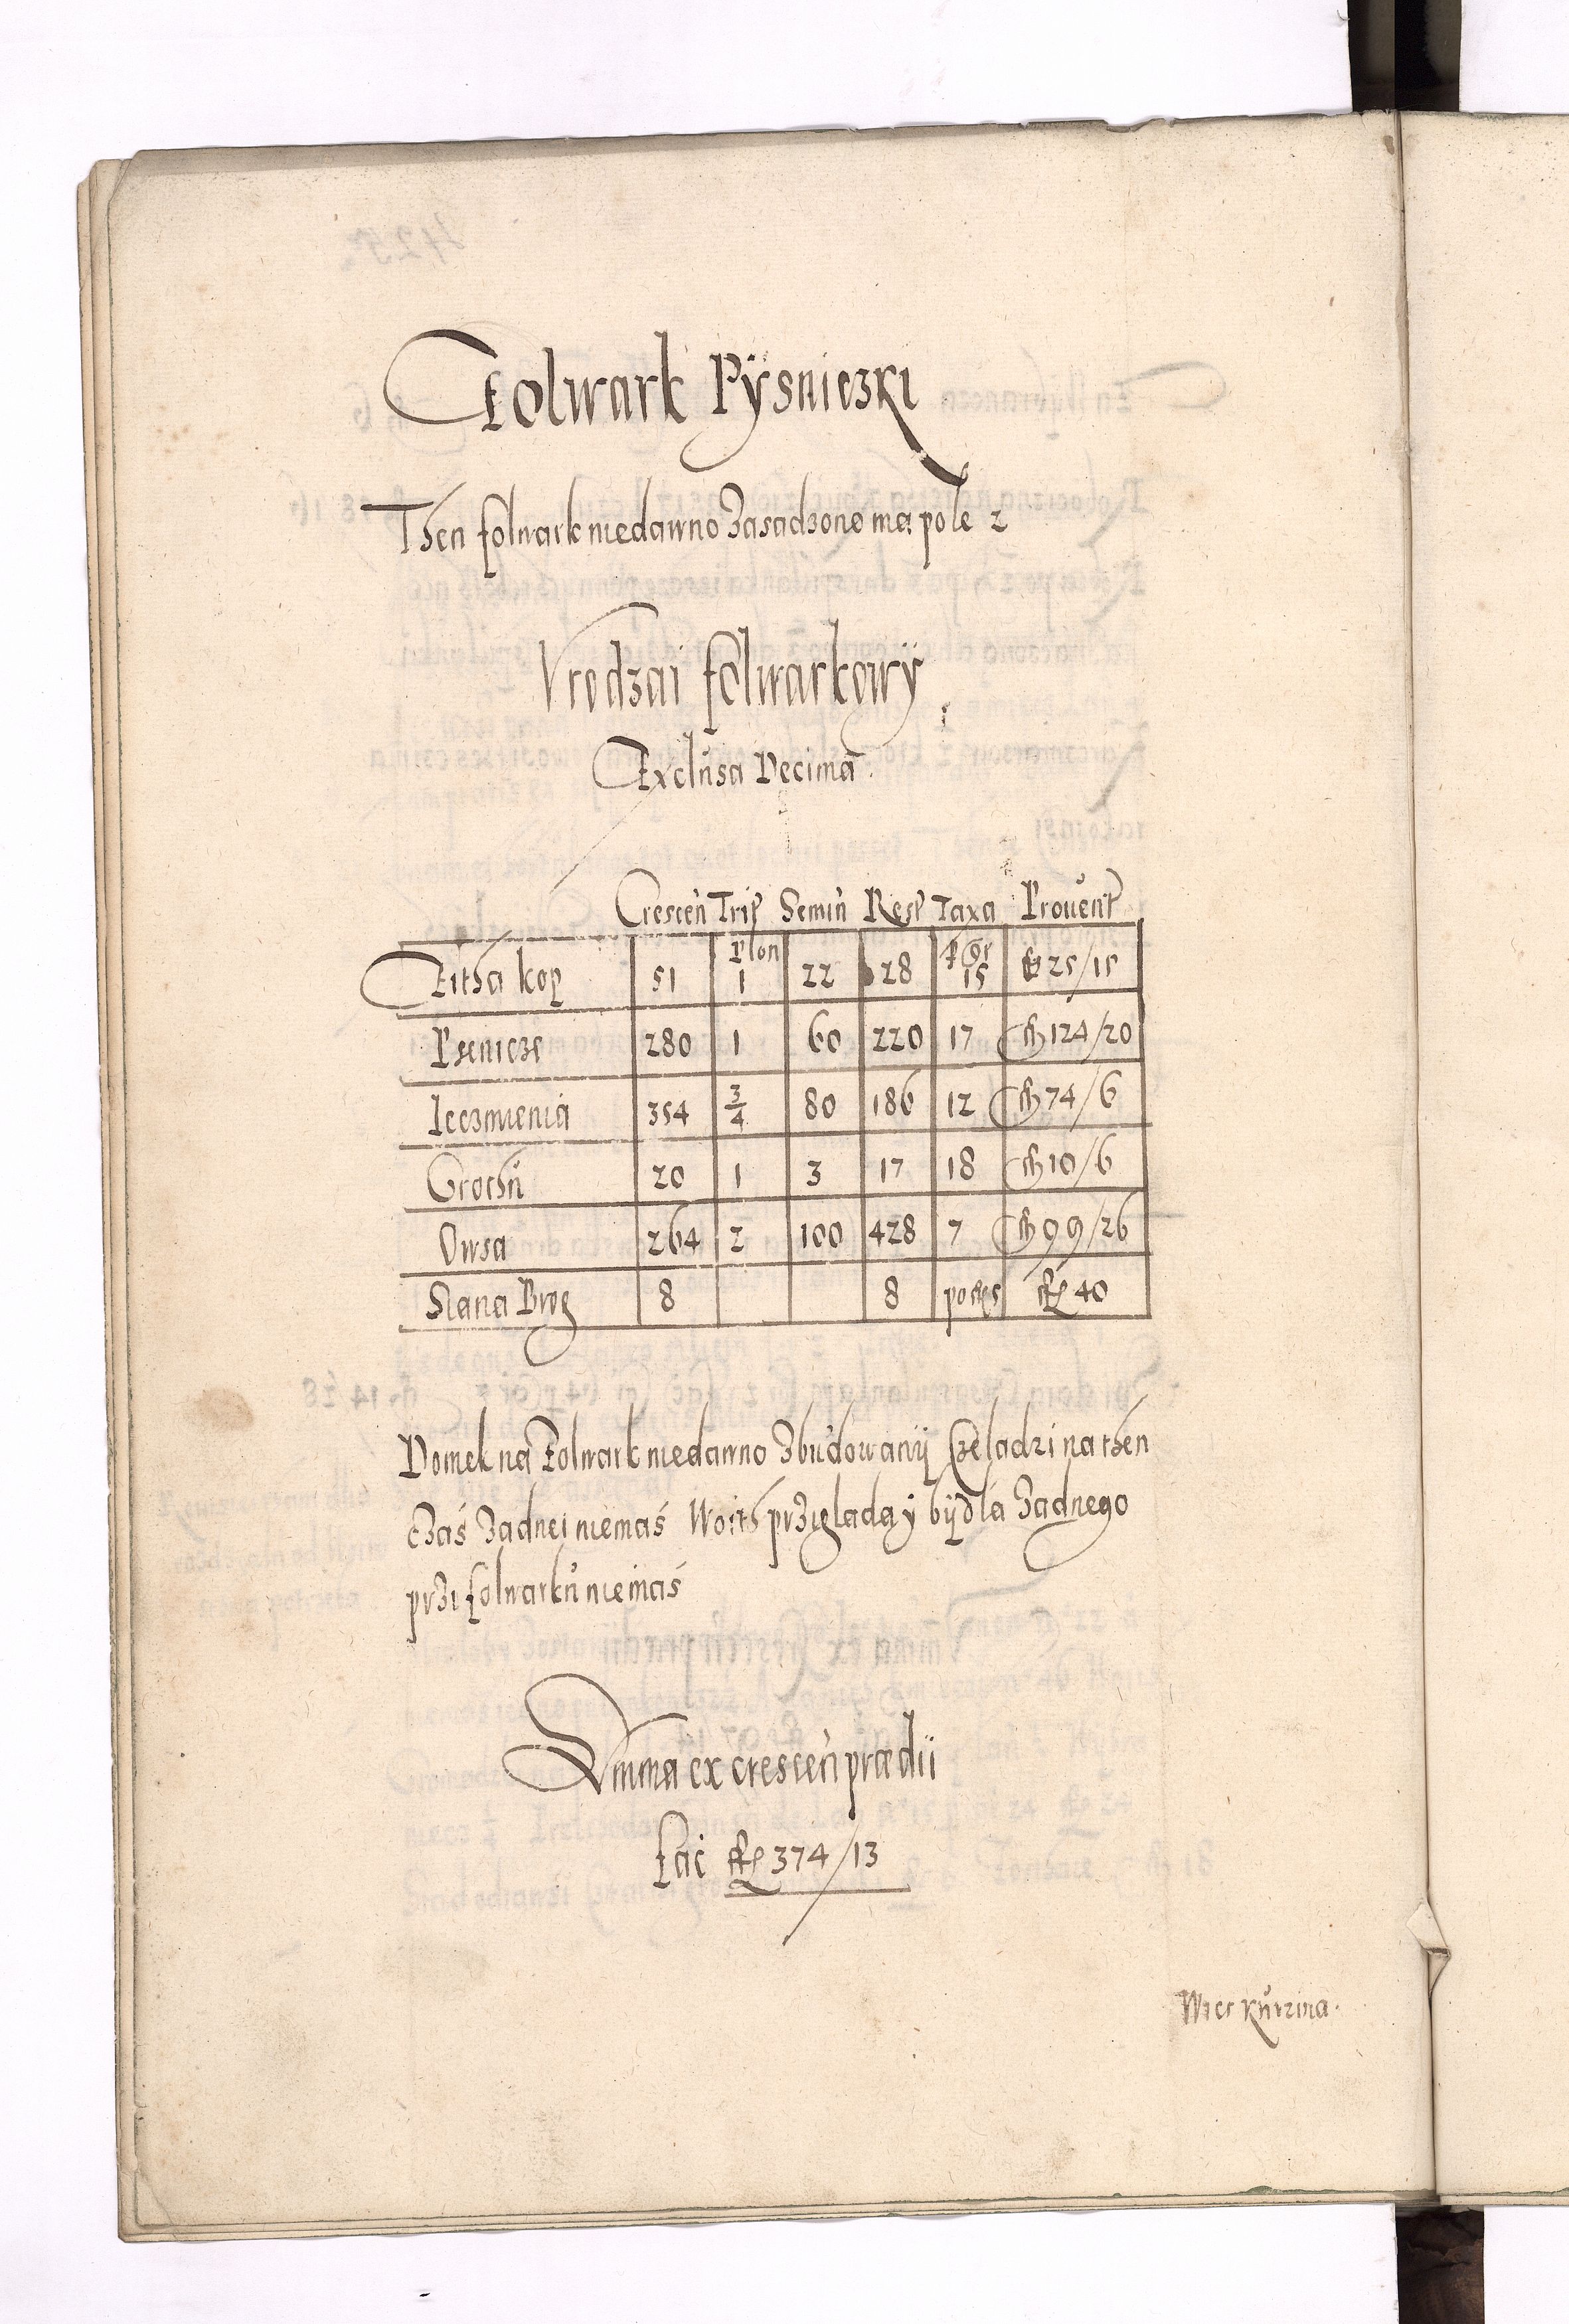 Folwark Pÿsniczki
Then folwark niedawno zasadzono ma pole 2
Vrodzai folwarkowÿ
Exclusa Decima
Crescen Trit Semin Rest Taxa Prouent
Zitha kop 51 Plon 1 22 28 P Gr 15 fl 25/15
Psenicze 280 1 60 220 17 fl 124/20
Ieczmienia 354 3/4 80 186 12 fl 74/6
Grochu 20 1 3 17 18 fl 10/6
Owsa 264 2 100 428 7 fl 99/26
Siana Brog 8 8 po fl 5 fl 40
Domek na Folwark niedawno zbudowanÿ Czeladzi na then
czas zadnei niemas Woith przigląda ÿ bÿdla zadnego
przi folwarku niemas
Summa ex crescen prædii
Fac fl 374/13
Wies Kurzina